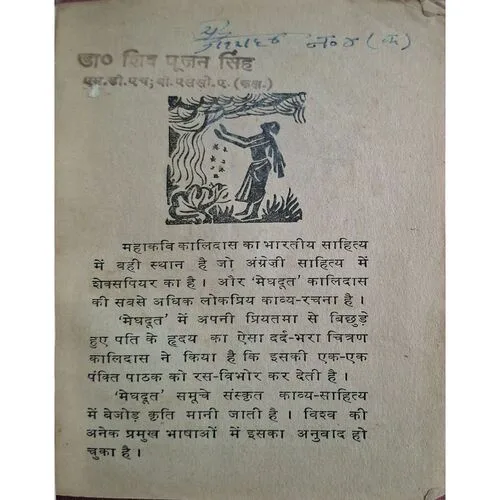 नं० ४ (क)
डा० शिव पूजन सिंह
एम.डी.एच; बी.एससी.ए. (कल.)
महाकवि कालिदास का भारतीय साहित्य
में वही स्थान है जो अंग्रेज़ी साहित्य में
शेक्सपियर का है। और 'मेघदूत' कालिदास
की सबसे अधिक लोकप्रिय काव्य-रचना है।
'मेघदूत' में अपनी प्रियतमा से बिछुड़े
हुए पति के हृदय का ऐसा दर्द-भरा चित्रण
कालिदास ने किया है कि इसकी एक-एक
पंक्ति पाठक को रस-विभोर कर देती है।
'मेघदूत' समूचे संस्कृत काव्य-साहित्य
में बेजोड़ कृति मानी जाती है। विश्व की
अनेक प्रमुख भाषाओं में इसका अनुवाद हो
चुका है।